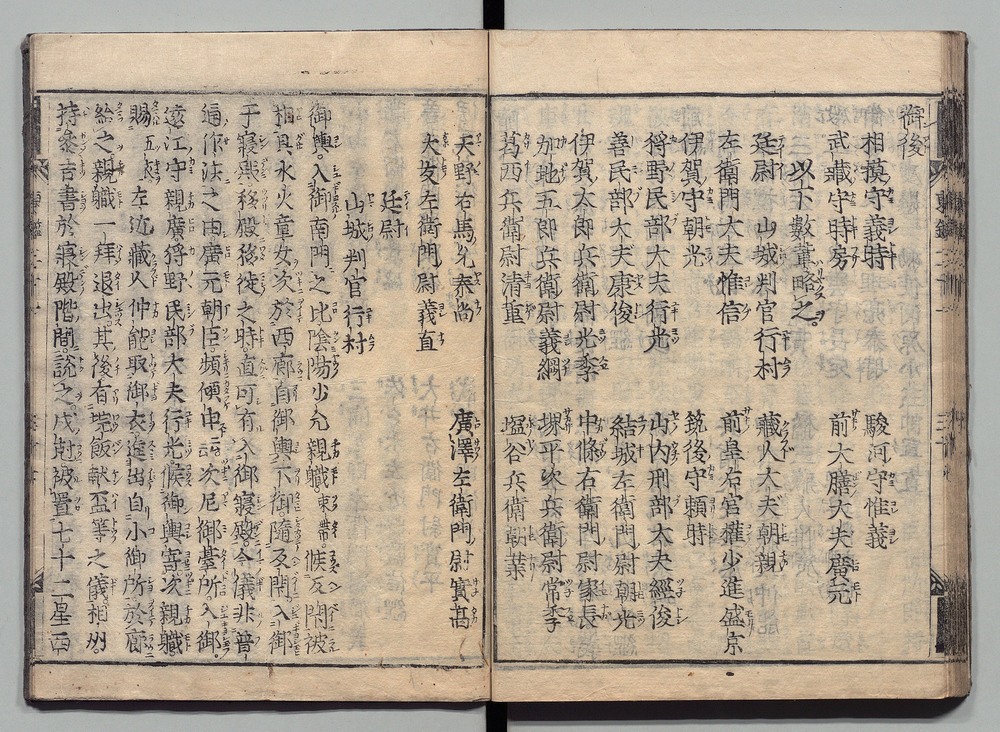 御後
相摸守義時
駿河守惟義
武藏守時房
前大膳大夫廣元
以下數輩略之。
廷尉
山城判官行村
藏人大夫朝親
左衛門大夫惟信
前皇后宮權少進盛京
伊賀守朝光
筑後守頼時
狩野民部大夫行光
山内刑部大夫經俊
善民部大夫康俊
結城左衛門尉朝光
伊賀太郎兵衛尉光季
中條右衛門尉家長
加地五郎兵衛尉義綱
堺平次兵衛尉常季
葛西兵衛尉清重
塩谷兵衛朝業
天野右馬允泰尚
廣澤左衛門尉實高
大友左衛門尉義直
廷尉
山城判官行村
御輿。入御南門之比陰陽少允親職。束帶候反閇被
相具水火童女次於西廊自御輿下御隨反閇入御
于寢殿移殿移徙之時直可有入御寢殿。今儀非普
通作法之由廣元朝臣頻傾申云云次尼御臺所入御。
遠江守親廣狩野民部大夫行光候御輿寄次親職。
賜五衣左近藏人仲能取御衣進出自小御所於廊
給之親職一拜退出其後有埦飯献盃等之儀相州。
持參吉書於寢殿階間。説之戌尅被置七十二星西